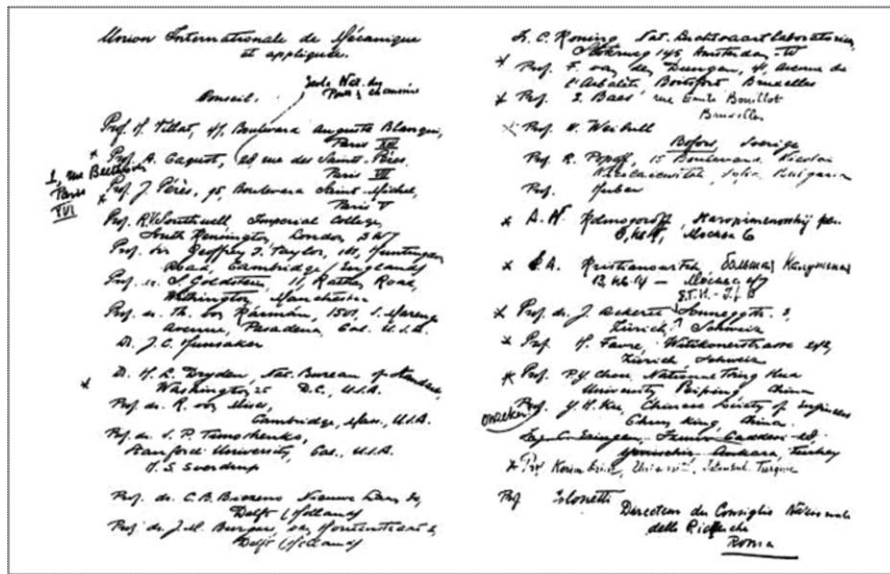 Union Internationale de Mécanique
et appliquée.
Ecole Nat. des
Ponts & chaussées
Conseil.
Prof. H. Villat, 47, Boulevard Auguste Blanqui,
Paris XIII
Prof. A. Caquot, rue des Saints-Pères,
Paris VII
1, rue Beethoven
Paris
XVI
Prof. J. Pérès, 95, Boulevard Saint-Michel,
Paris V
Prof. R.V. Southwell, Imperial College,
South Kensington, London, SW7
Prof. Sir Geoffrey I. Taylor, Huntingdon
Road, Cambridge, England
Prof. S. Goldstein, 11, Road,
Manchester
Prof. dr. Th. von Kármán, 1501, S. Marengo
Avenue, Pasadena, Cal. U.S.A.
Dr. J.C. Hunsaker
Dr. H.L. Dryden, Nat. Bureau of Standards,
Washington 25 D.C., U.S.A.
Prof. dr. R. von Mises,
Cambridge, Mass., U.S.A.
Prof. dr. S. P. Timoshenko,
Stanford University, Cal., U.S.A.
H. S. Sverdrup
Prof. dr. C.B. Biezeno, Nieuwe Laan
Delft (Holland)
Prof. dr. J.M. Burgers, van
Delft (Holland)
C. Koning Nat. Luchtvaartlaboratorium,
Sloterweg 145, Amsterdam-W
Prof. F. van den Dungen, Avenue de
l'Arbalète, Boitsfort, Bruxelles
Prof. L. Baes, rue Emile Bouillot
Bruxelles
Prof. W. Weibull
Bofors, Sverige
Prof. R. Popoff, 15 Boulevard Nicolai
Sofia, Bulgaria
Prof. Huber
A. N. Kolmogoroff,
Москва 6
S.A.
Москва
E.T.H.
Prof. dr. J. Ackeret, Sonneggstr. 3,
Zürich, Schweiz
Prof. H. Favre, Witikonerstrasse
Zürich, Schweiz
Prof. P.Y. Chou, National Tsing Hua
University, Peiping, China
Prof. Y. H. Ku, Chinese Society of Engineers
Chung King, China.
C. Eringen,
Ankara, Turkey
Prof. Kerim Erim, Université, Istanbul, Turquie
Prof Colonnetti
Directeur du Consiglio Nazionale
delle Ricerche
Roma